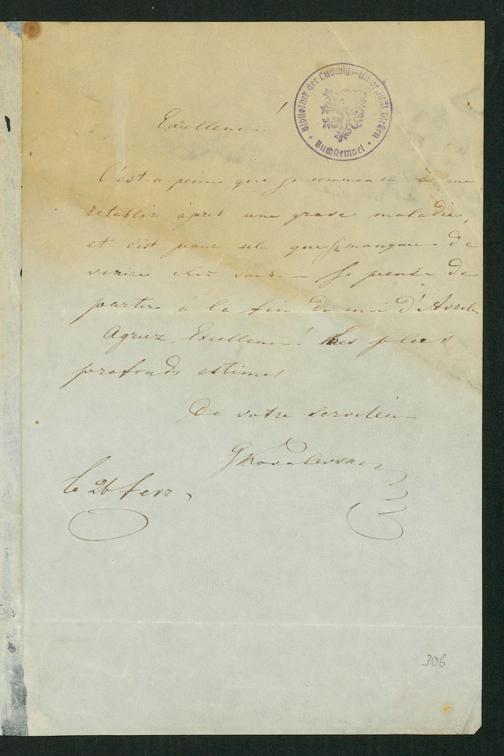 Bibliothek der Ludwigs-Universität Giessen
Buchstempel
Excellence!
C'est a peine que je commence à me
retablir après une grave maladie,
et c'est pour cela que je manque de
venire chez vous. — Je pense de
partir à la fin de moi d'Avril.
Agriez, Excellence! les plus
profonds estimes
De votre serviteur
GKovalevsky
le 26 fevr.
306